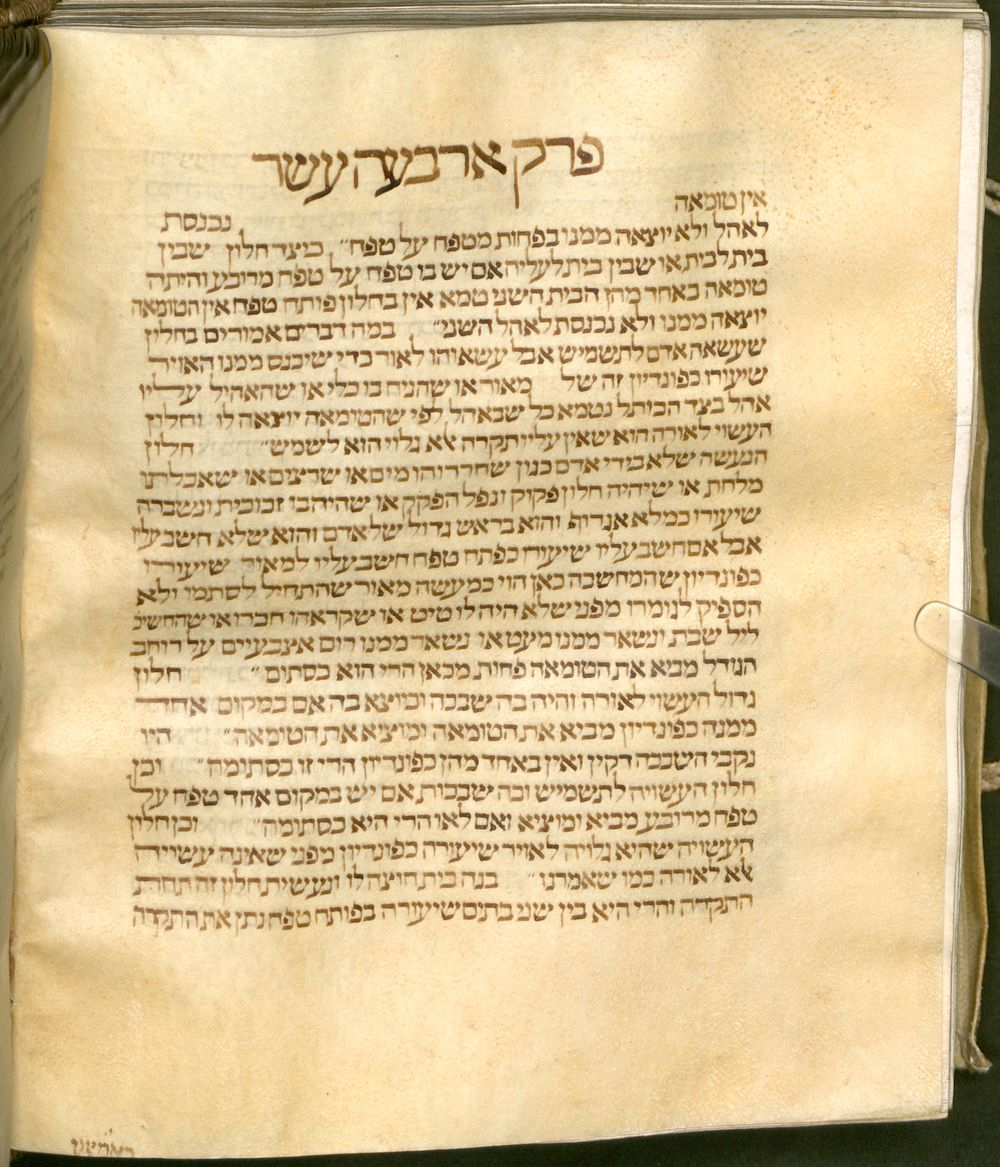 פרק ארבעה עשר
אין טומאה
נכנסת
לאהל ולא יוצאה ממנו בפחות מטפח על טפח״ כיצד חלון שבין
בית לבית או שבין בית לעליה אם יש בו טפח על טפח מרובע והיתה
טומאה באחד מהן הבית השני טמא אין בחלון פותח טפח אין הטומאה
יוצאה ממנו ולא נכנסת לאהל השני״ במה דברים אמורים בחלון
שעשאה אדם לתשמיש אבל עשאוהו לאור כדי שיכנס ממנו האויר
שיעורו כפונדיון זה של מאור או שהניח בו כלי או שהאהיל עליו
אהל בצד הכותל נטמא כל שבאהל לפי שהטומאה יוצאה לו וחלון
העשוי לאורה הוא שאין עליו תקרה אלא גלוי הוא לשמש״ חלון
הנעשה שלא בידי אדם כגון שחררוהו מים או שרצים או שאכלתו
מלחת או שיהיה חלון פקוק ונפל הפקק או שהיה בו זכוכית ונשברה
שיעורו כמלא אגרוף והוא בראש גדול של אדם והוא שלא חשב עליו
אבל אם חשב עליו שיעורו כפתח טפח חשב עליו למאור שיעורו
כפונדיון שהמחשבה כאן הוי כמעשה מאור שהתחיל לסתמו ולא
הספיק לגומרו מפני שלא היה לו טיט או שקראהו חברו או שהחשיכ
ליל שבת ונשאר ממנו מעט או נשאר ממנו רום אצבעיים על רוחב
הגודל מביא את הטומאה פחות מכאן הרי הוא כסתום״ חלון
גדול העשוי לאורה והיה בה שבכה וכיוצא בה אם במקום אחד
ממנה כפונדיון מביא את הטומאה ומוציא את הטומאה״ היו
נקבי השבכה דקין ואין באחד מהן כפונדיון הרי זו כסתומה״ וכן
חלון העשויה לתשמיש ובה שבכות אם יש במקום אחד טפח על
טפח מרובע מביא ומוציא ואם לאו הרי היא כסתומה״ וכן חלון
העשויה שהיא גלויה לאויר שיעורה כפונדיון מפני שאינה עשויה
אלא לאורה כמו שאמרנו״ בנה בית חוצה לו ונעשית חלון זה תחת
התקרה והרי היא בין שני בתים שיעורה בפותח טפח נתן את התקרה